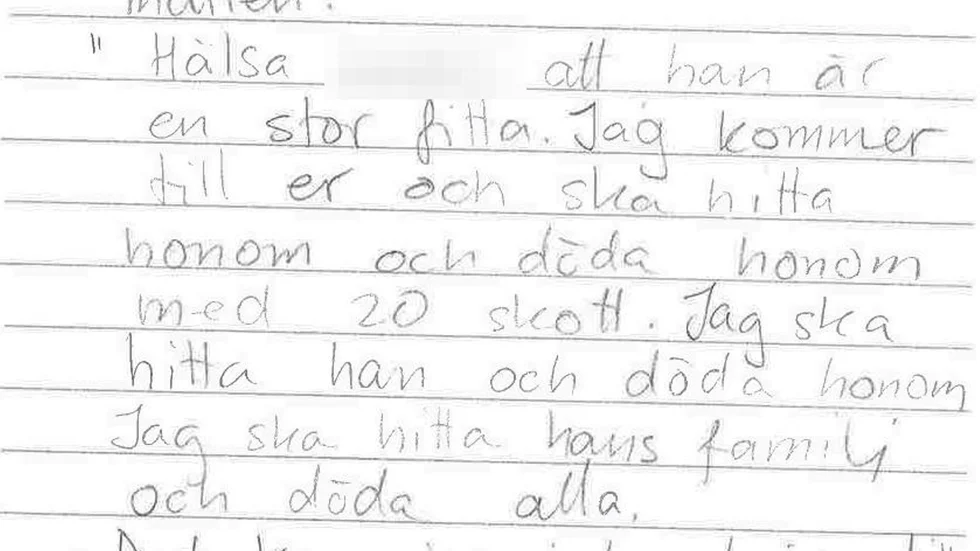 " Hälsa att han är
en stor fitta. Jag kommer
till er och ska hitta
honom och döda honom
med 20 skott. Jag ska
hitta han och döda honom
Jag ska hitta hans familj
och döda alla.